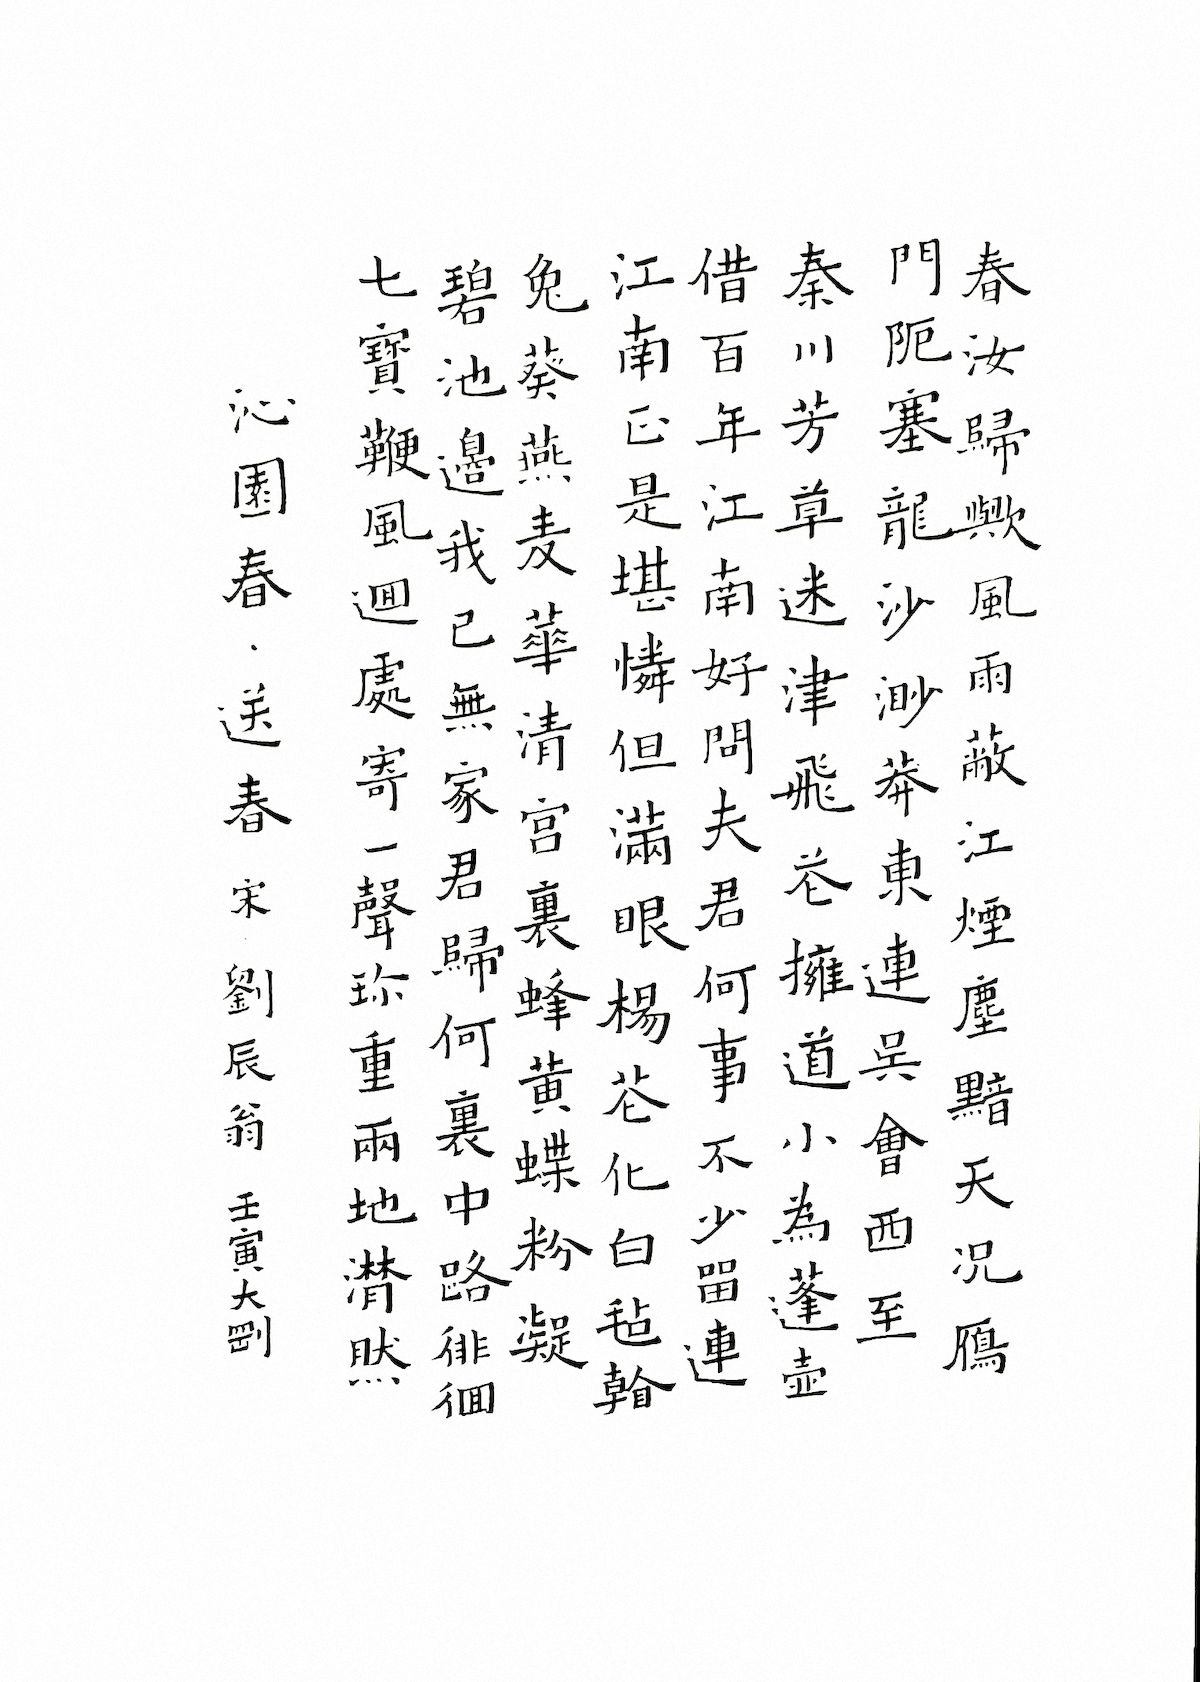 春汝歸歟風雨蔽江煙塵黯天況鴈
門阨塞龍沙渺莽東連吳會西至
秦川芳草迷津飛花擁道小為蓬壺
借百年江南好問夫君何事不少留連
江南正是堪憐但滿眼楊花化白氈
兔葵燕麦華清宮裏蜂黄蝶粉凝
碧池邊我已無家君歸何裏中路徘徊
七寶鞭風迴處寄一聲珎重兩地潸然
沁園春·送春 宋 劉辰翁 壬寅大剛